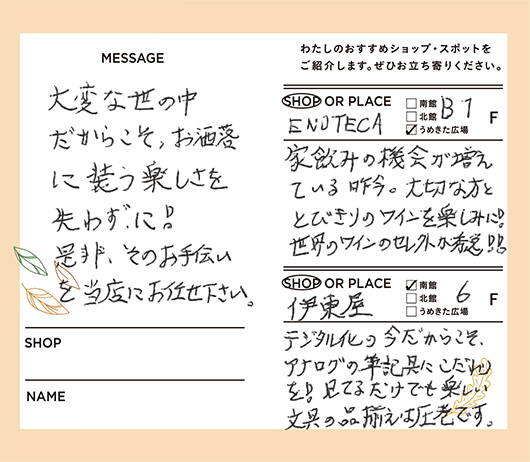 MESSAGE
大変な世の中
だからこそ、お洒落
に装う楽しさを
失わずに!!
是非、そのお手伝い
を当店にお任せ下さい。
SHOP
NAME
わたしのおすすめショップ・スポットを
ご紹介します。ぜひお立ち寄りください。
SHOP OR PLACE
ENOTECA
□南館
□北館
☑うめきた広場
B1 F
家飲みの機会が増え
ている昨今。大切な方と
とびきりのワインを楽しみに!!
世界のワインのセレクトが秀逸!!
SHOP OR PLACE
伊東屋
☑南館
□北館
□うめきた広場
6 F
デジタル化の今だからこそ、
アナログの筆記具にこだわり
を!! 見てるだけでも楽しい
文具の品揃えは圧巻です。